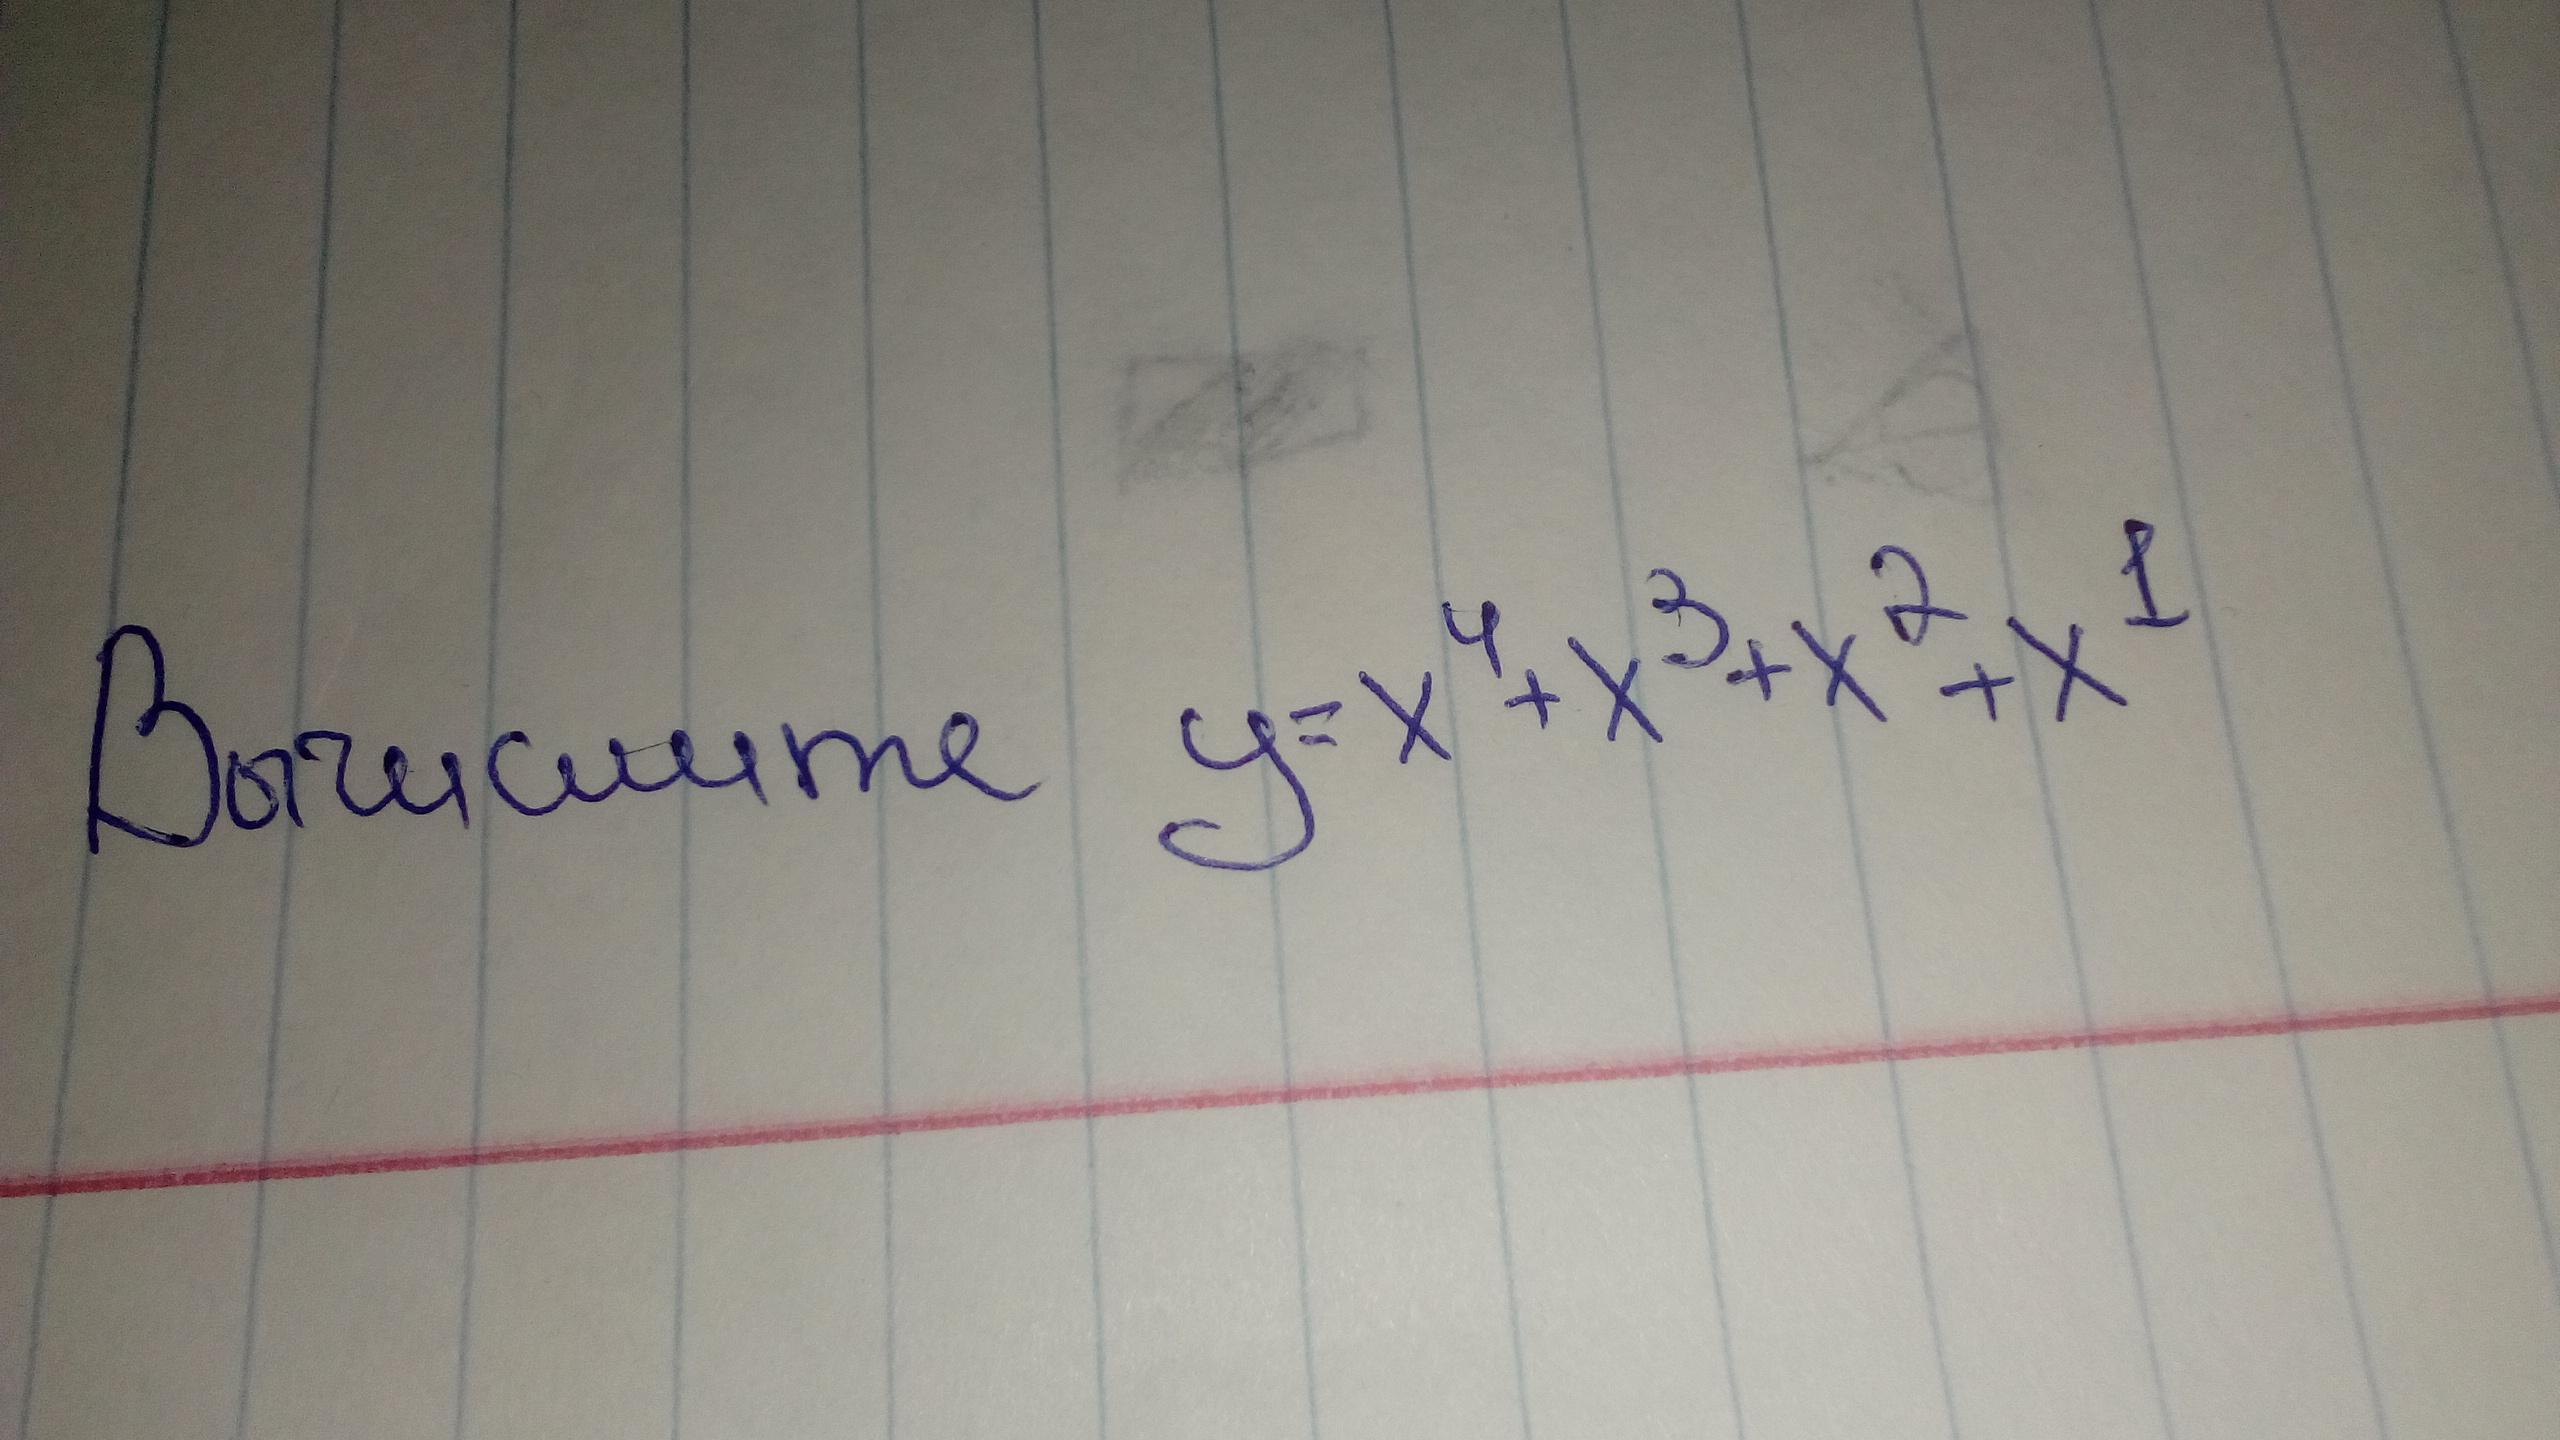 Вычислите y=x⁴+x³+x²+x¹